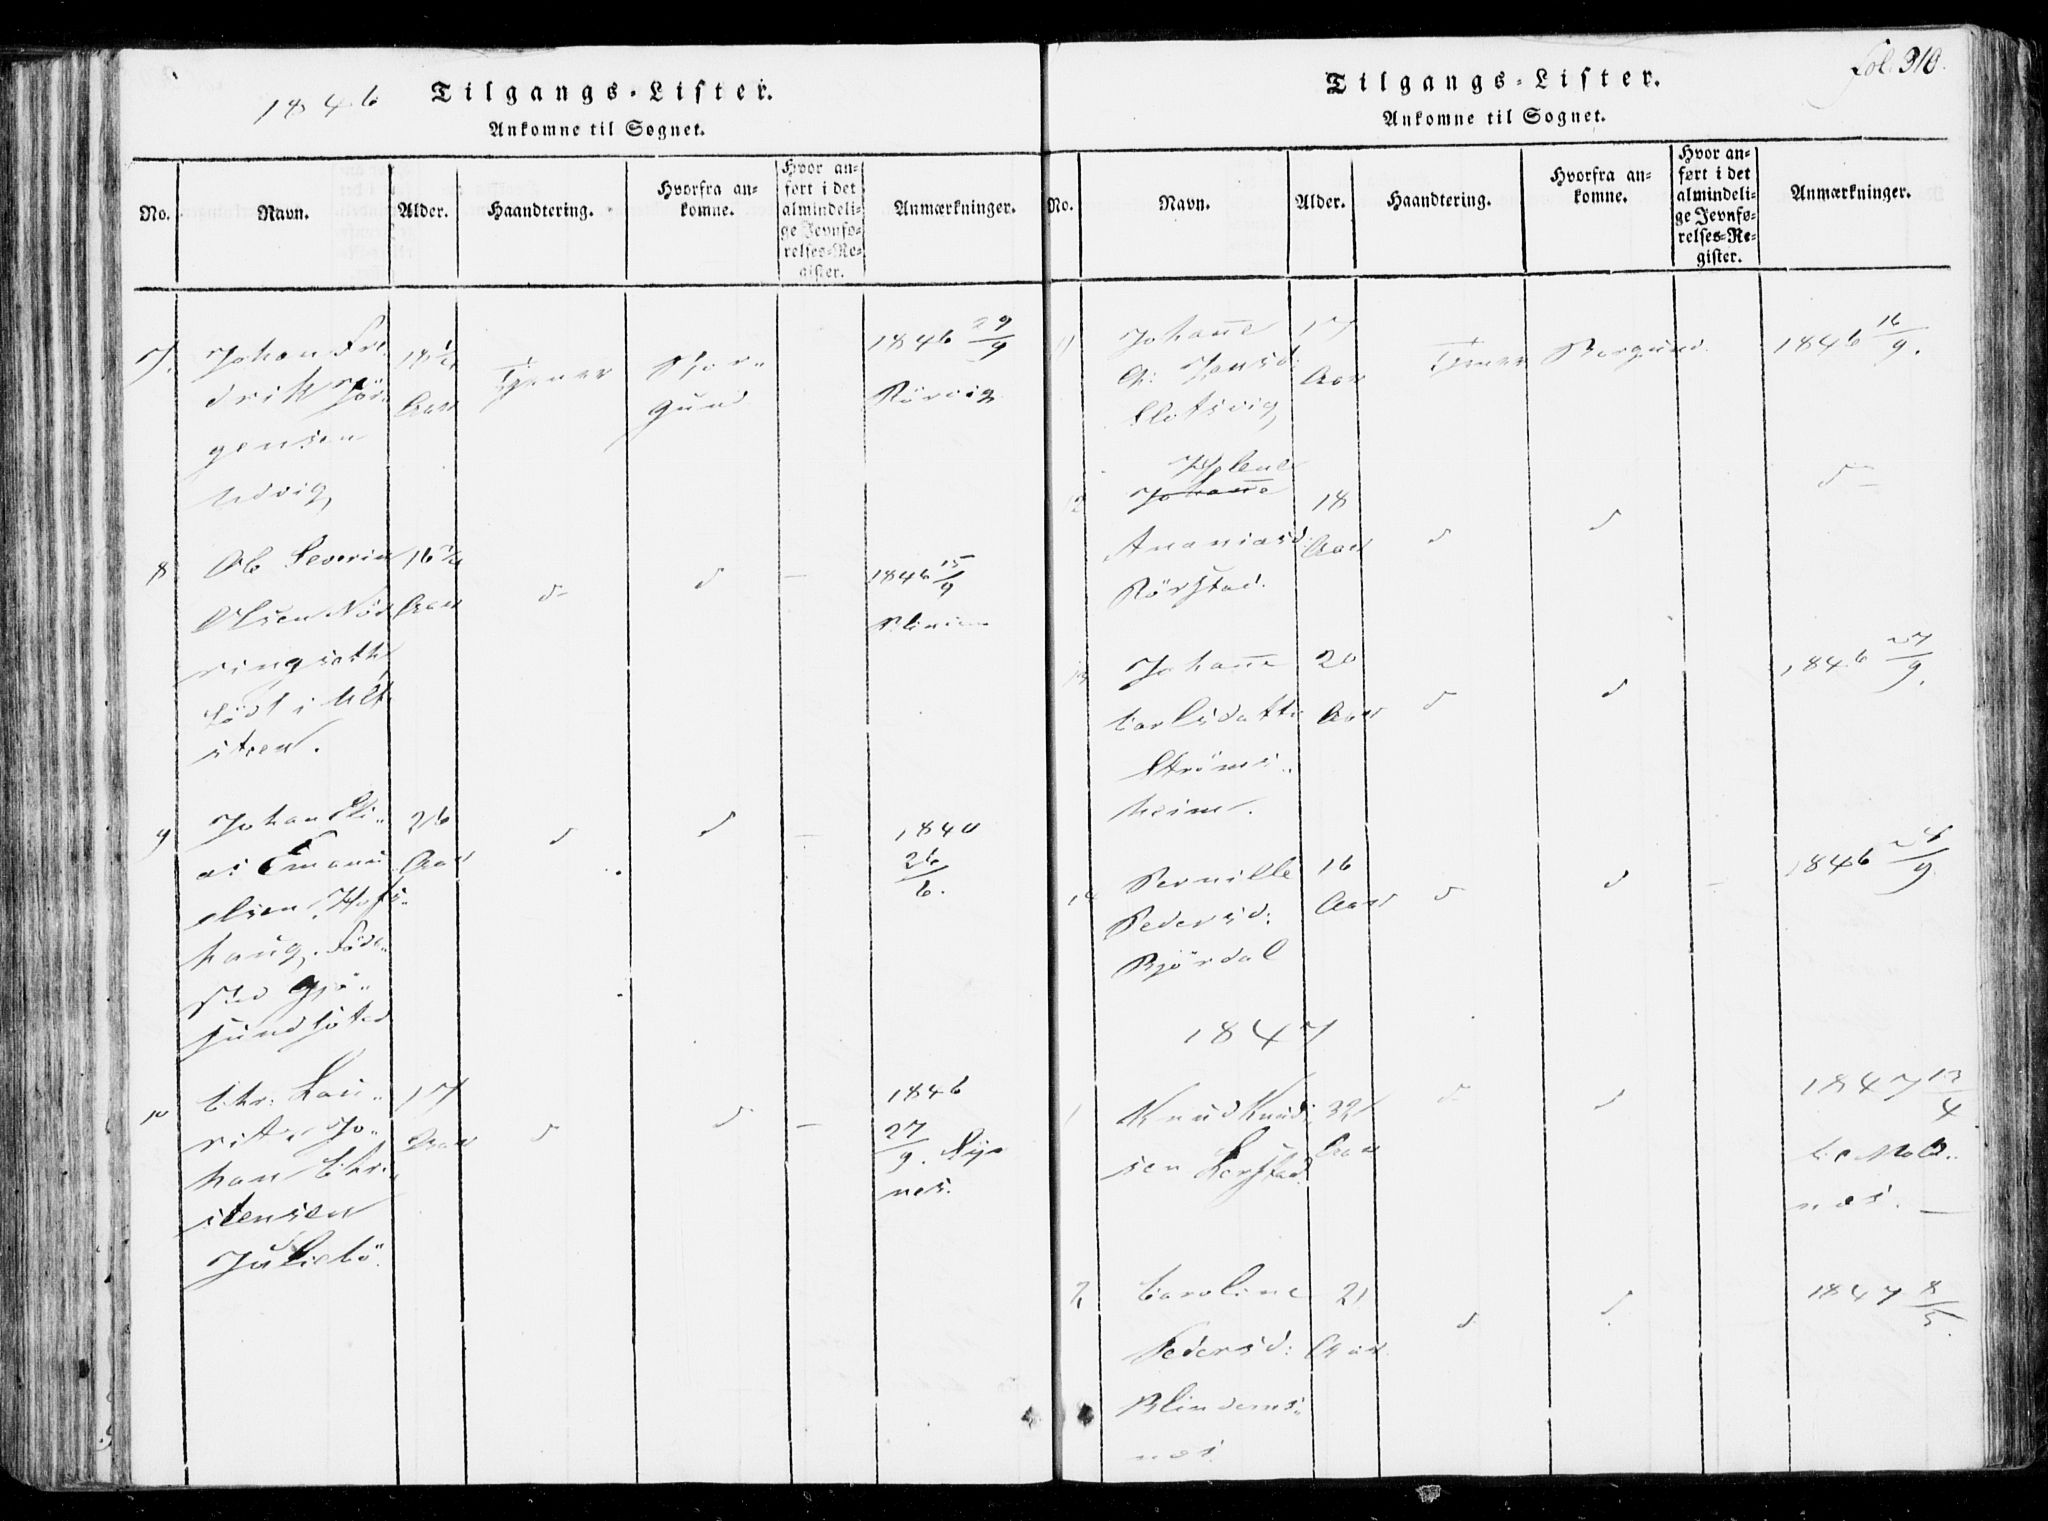 1846
Tilgangs-Lister.
Ankomne til Sognet.
No.
Navn.
Alder.
Haandtering.
Hvorfra an-
komne.
Hvor an-
ført i det
almindeli-
ge Jevnfø-
relses-Re-
gister.
Anmærkninger.
7.
Johan Fre-
drik Jör-
gensen
Udvig
18 1/4
Aar
Tjener
Bor-
gund
1846 29/9
Rörvig
8
Ole Severin
Olsen Nör
ringsæth
född i Ulf
steen.
16 1/4
Aar
d
d
—
1846 15/9
9
Johan Eli-
as Emanu
elsen Hofs-
haug. Föde-
sted Gjö-
sund
26
Aar
d
d
—
1840
26/6.
10
Chr. Lau-
ritz Jo-
han Chri-
stensen
Juliebö
17
Aar
d
d
—
1846
27/9.
nes.
Fol. 310.
Tilgangs-Lister.
Ankomne til Sognet.
No.
Navn.
Alder.
Haandtering.
Hvorfra an-
komne.
Hvor an-
ført i det
almindeli-
ge Jevnfø-
relses-Re-
gister.
Anmærkninger.
11
Johanne
Jensd:
Slotsvig
17
Aar
Tjener
Borgund.
1846 16/9.
12
Helene
Johanne
Ananiasd:
Rörstad.
18
Aar
d
d
d
13
Johanne
Carlsdatter
Ströms-
heim.
20
Aar
d
d
1846 27/9.
14
Pernille
Pedersd:
Björdal
16
Aar
d
d
—
1846
1847
1
Knud Knud-
sen Lerstad.
32
Aar
d
d
1847 13/4
nes. —
2
Caroline
Pedersd:
Blindems-
nes.
21
Aar.
d
d.
1847 8/5.